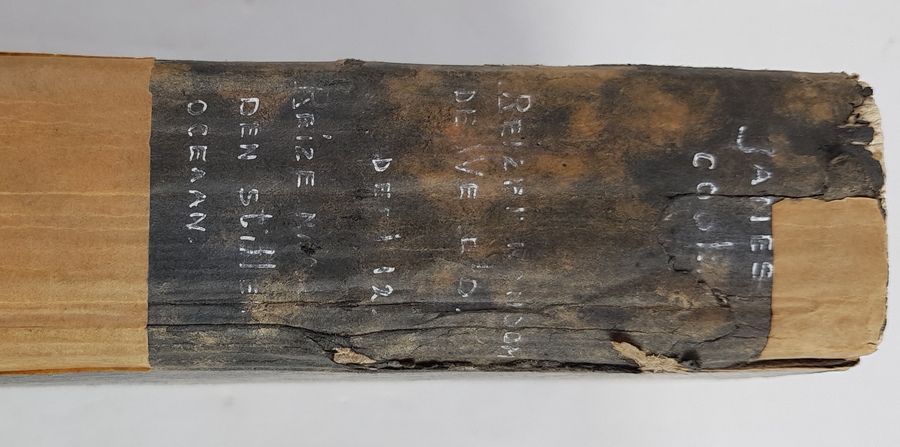 JAMES
COOK
REIZEN RONDOM
DE WERELD.
DEEL 12.
REIZE NA
DEN StillE
OCEAAN.